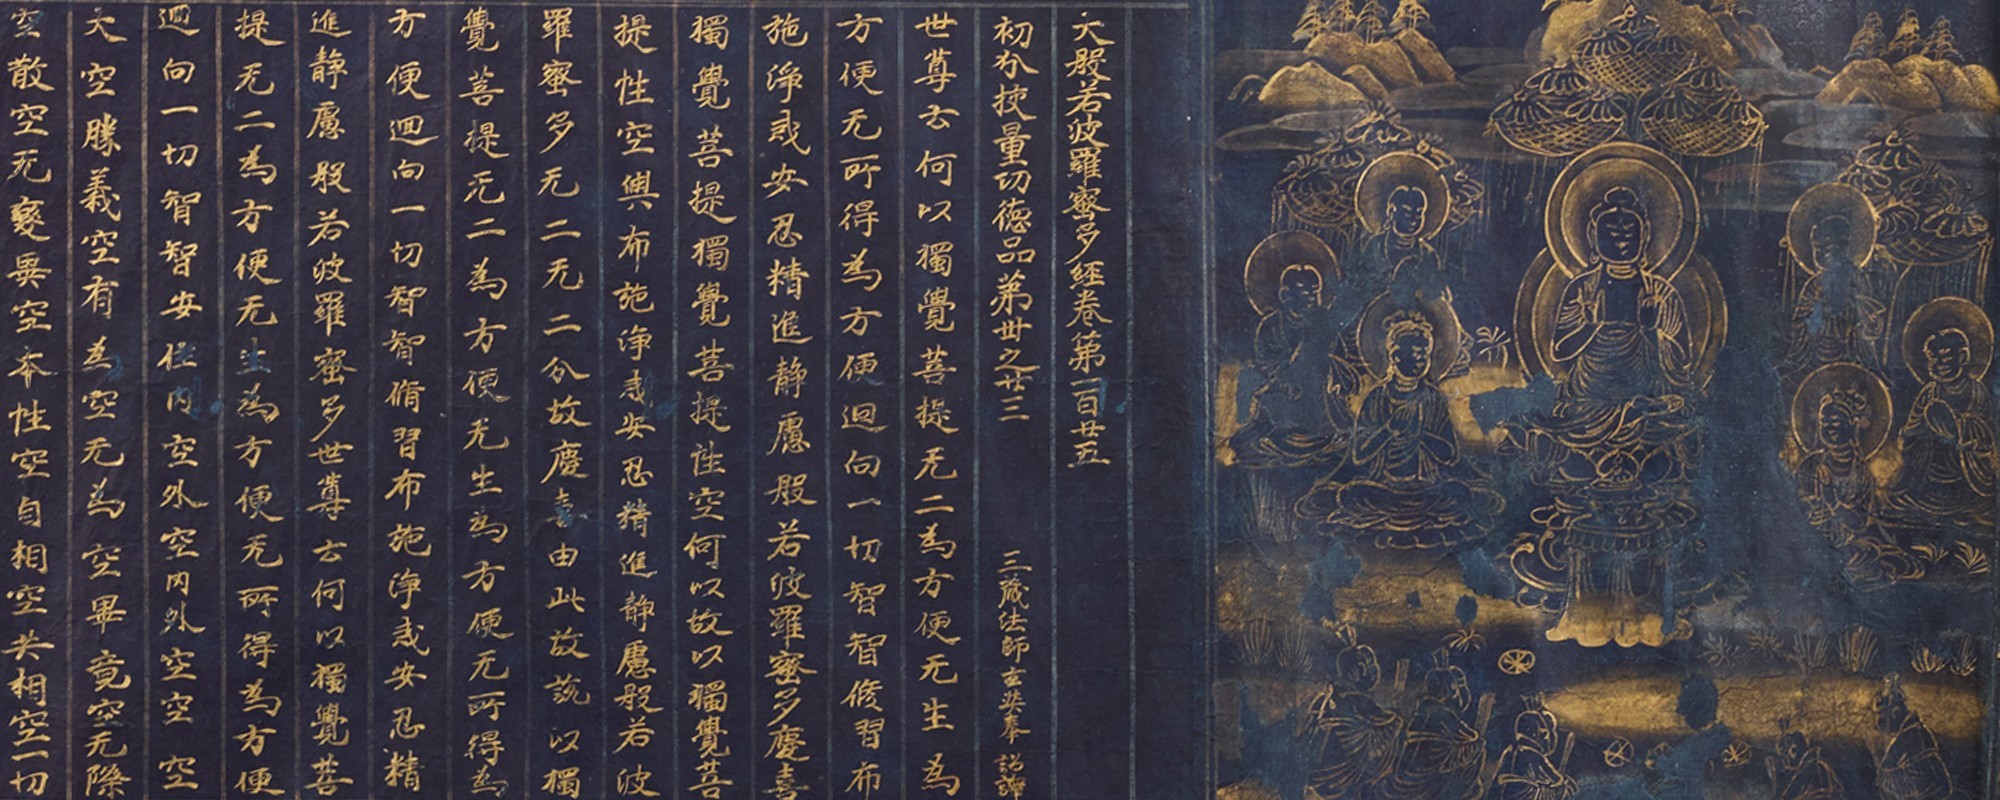 大般若波羅蜜多經卷第一百廿五
初分挍量功德品第丗之廿三 三蔵法師玄奘奉 詔譯
世尊云何以獨覺菩提无二為方便无生為
方便无所得為方便迴向一切智智脩習布
施淨戒安忍精進静慮般若波羅蜜多慶喜
獨覺菩提獨覺菩提性空何以故以獨覺菩
提性空與布施淨戒安忍精進静慮般若波
羅蜜多无二无二分故慶喜由此故說以獨
覺菩提无二為方便无生為方便无所得為
方便迴向一切智智脩習布施淨戒安忍精
進静慮般若波羅蜜多世尊云何以獨覺菩
提无二為方便无生為方便无所得為方便
迴向一切智智安住内空外空内外空空空
大空勝義空有為空无為空畢竟空无際
空散空无變異空本性空自相空共相空一切